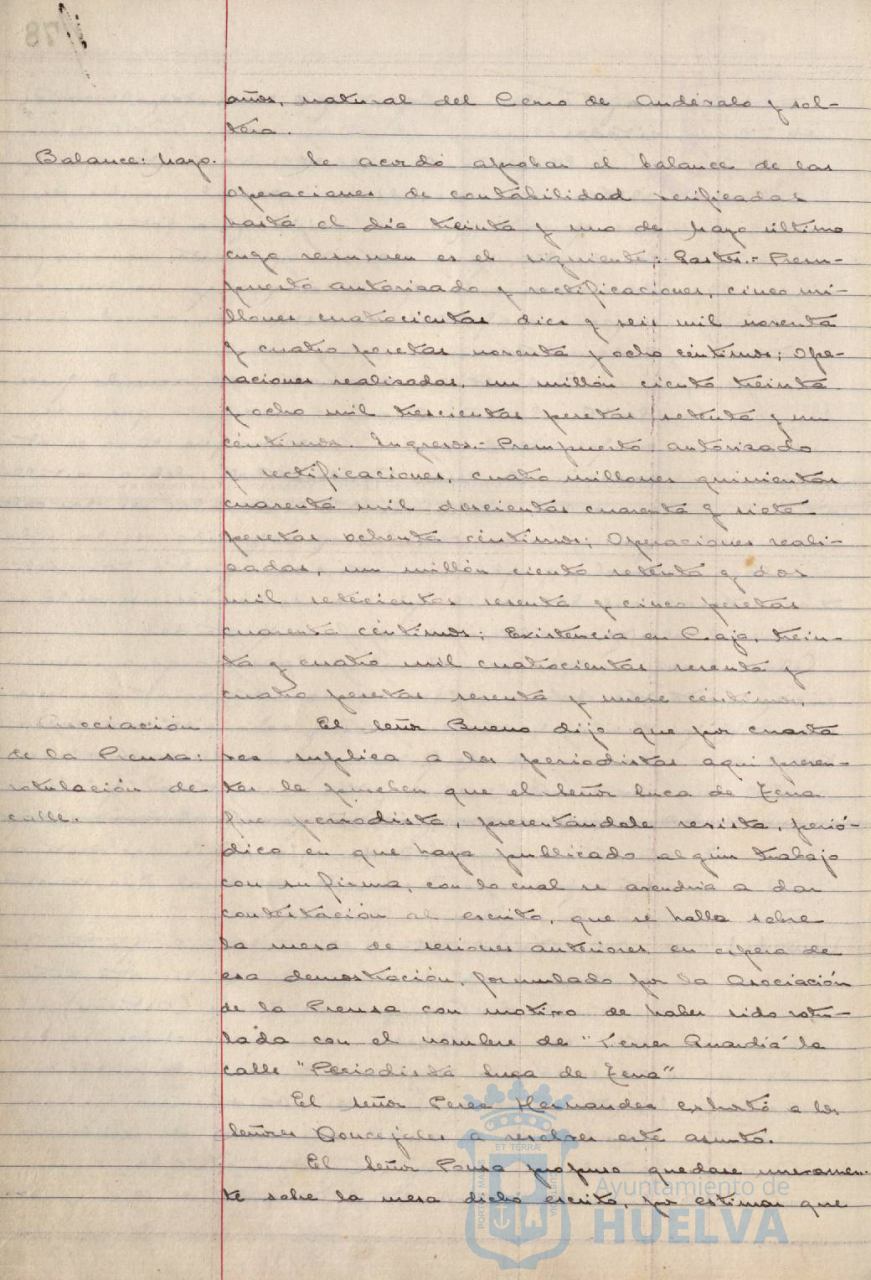 78
años, natural del Cerro de Andévalo y sol-
tera.
Balance: Mayo.
Se acordó aprobar el balance de las
operaciones de contabilidad verificadas
hasta el día treinta y uno de Mayo último
cuyo resumen es el siguiente: Gastos.- Presu-
puesto autorizado y rectificaciones, cinco mi-
llones cuatrocientas diez y seis mil noventa
y cuatro pesetas noventa y ocho céntimos; Ope-
raciones realizadas, un millón ciento treinta
y ocho mil trescientas pesetas setenta y un
céntimos. Ingresos.- Presupuesto autorizado
y rectificaciones, cuatro millones quinientas
cuarenta mil doscientas cuarenta y siete
pesetas ochenta céntimos; Operaciones reali-
zadas, un millón ciento setenta y dos
mil setecientas sesenta y cinco pesetas
cuarenta céntimos; Existencia en Caja, trein-
ta y cuatro mil cuatrocientas sesenta y
cuatro pesetas sesenta y nueve céntimos.
Asociación
de la Prensa:
rotulación de
calle.
El señor Bueno dijo que por cuarta
vez suplica a los periodistas aquí presen-
tes le prueben que el señor Luca de Tena
fue periodista, presentándole revista, perió-
dico en que haya publicado algún trabajo
con su firma, con lo cual se avendría a dar
contestación al escrito, que se halla sobre
la mesa de sesiones anteriores en espera de
esa demostración, formulado por la Asociación
de la Prensa con motivo de haber sido rotu-
lada con el nombre de "Ferrer Guardia" la
calle "Periodista Luca de Tena"
El señor Perez Hernandez exhortó a los
señores Concejales a resolver este asunto.
El señor Ponsa propuso quedase nuevamen-
te sobre la mesa dicho escrito, por estimar que
PORTUS MARIS
ET TERRÆ
Ayuntamiento de
HUELVA